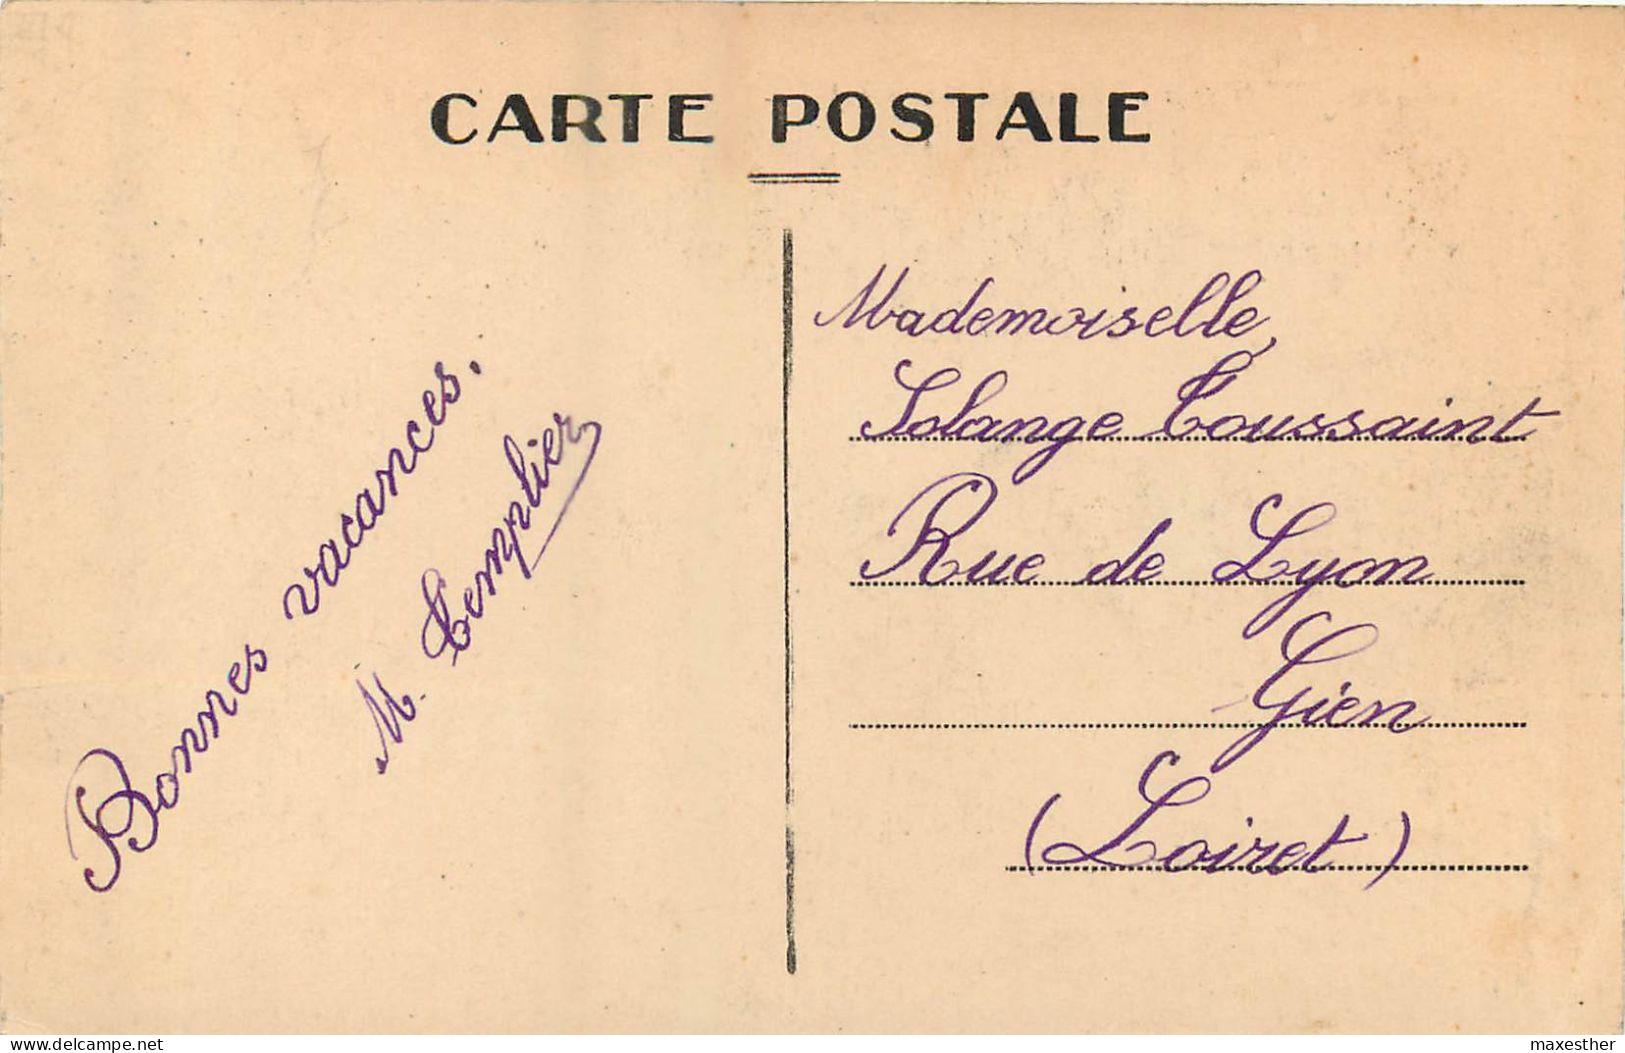 CARTE POSTALE
Bonnes vacances.
M. Templier
Mademoiselle
Solange Toussaint
Rue de Lyon
Gien
(Loiret)
www.delcampe.net
maxesther